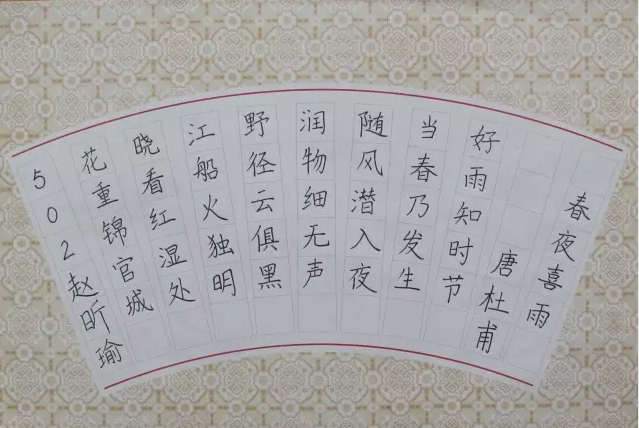 春夜喜雨
唐杜甫
好雨知时节
当春乃发生
随风潜入夜
润物细无声
野径云俱黑
江船火独明
晓看红湿处
花重锦官城
502赵昕瑜